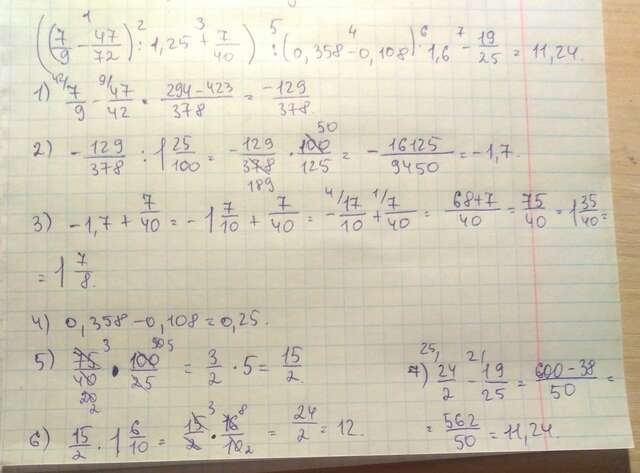 ((7/9 - 47/72) : 1,25 + 7/40) : (0,358 - 0,108) · 1,6 - 19/25 = 11,24.
1) 42/ 7/9 - 9/ 47/42 · 294-423/378 = -129/378
2) -129/378 : 1 25/100 = -129/378 189 · 50 100/125 = -16125/9450 = -1,7.
3) -1,7 + 7/40 = -1 7/10 + 7/40 = 4/ -17/10 + 1/ 7/40 = 68+7/40 = 75/40 = 1 35/40 =
= 1 7/8.
4) 0,358 - 0,108 = 0,25.
5) 75 3/40 20 2 · 100 20 5/25 = 3/2 · 5 = 15/2.
6) 15/2 · 1 6/10 = 15 3/2 · 16 8/10 2 = 24/2 = 12.
7) 25/ 24/2 - 2/ 19/25 = 600-38/50 =
= 562/50 = 11,24.